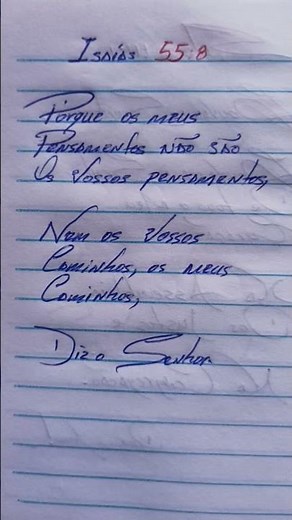 Isaías 55:8
Porque os meus
Pensamentos não são
Os Vossos pensamentos,
Nem os Vossos
Caminhos, os meus
Caminhos,
Diz o Senhor